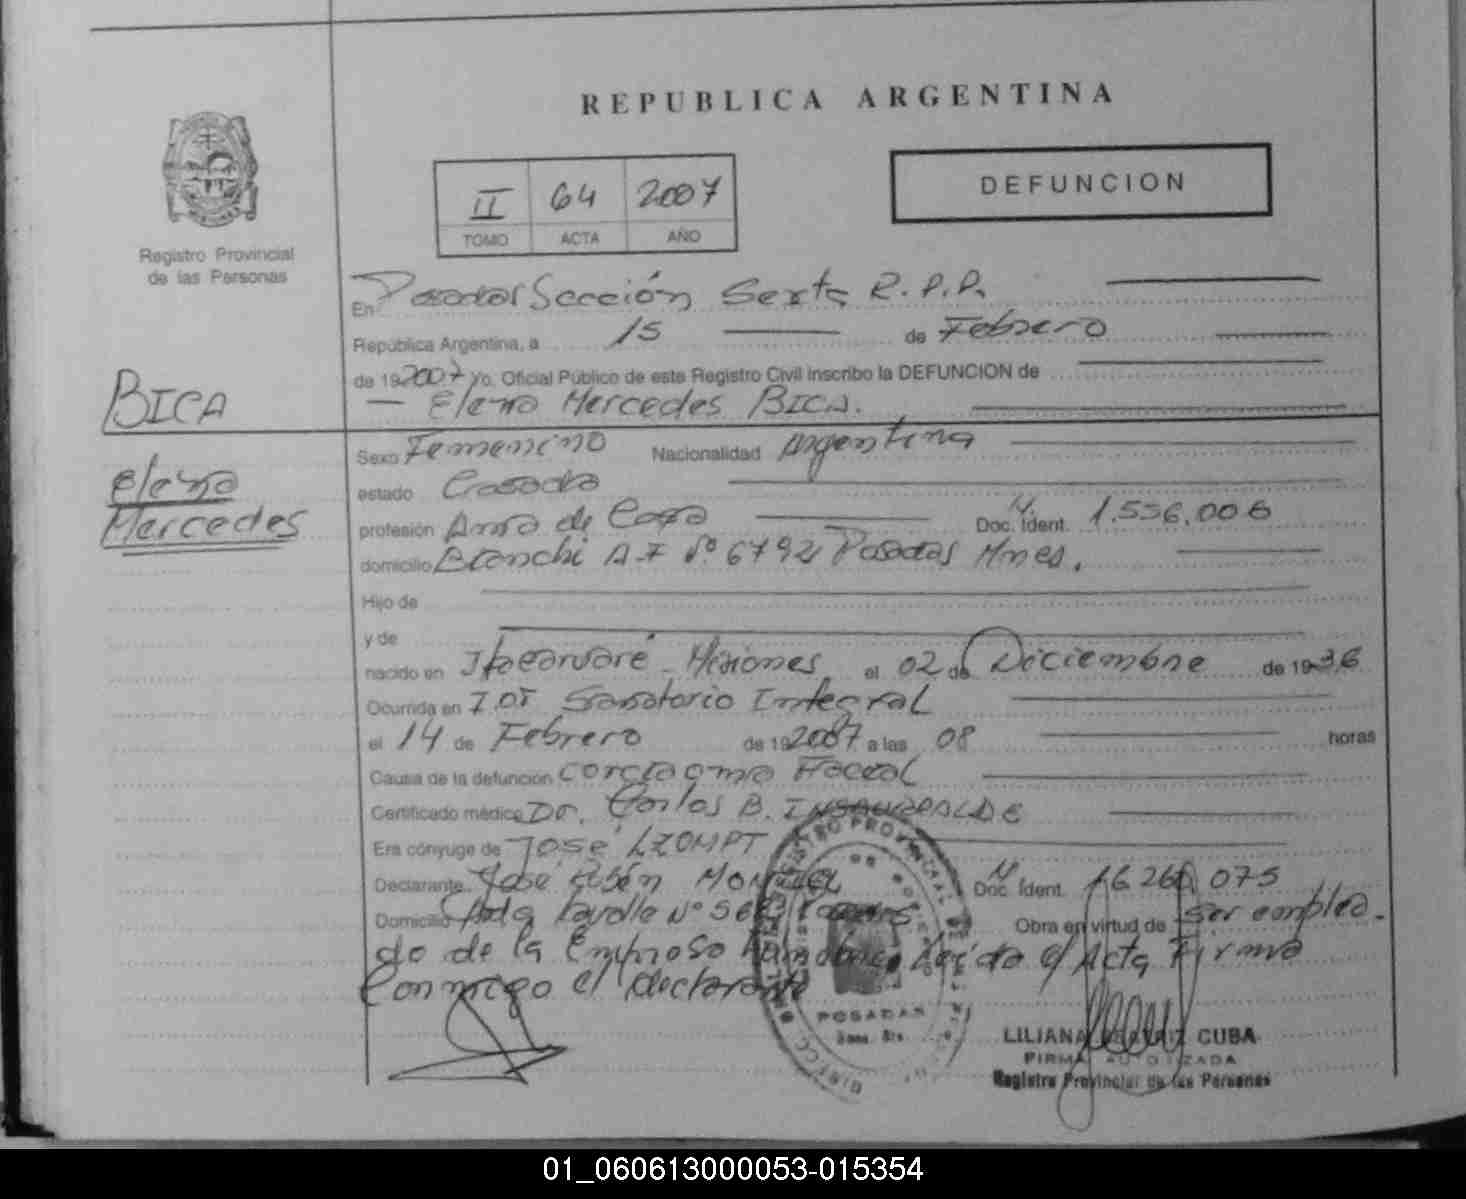 REPUBLICA ARGENTINA
II 64 2007
TOMO ACTA AÑO
DEFUNCION
Registro Provincial
de las Personas
En Posadas Sección Sexta R.P.P.
República Argentina, a 15 de Febrero
de 19 2007 Yo, Oficial Público de este Registro Civil inscribo la DEFUNCION de
Elena Mercedes BICA.
BICA
Elena
Mercedes
Sexo Femenino Nacionalidad Argentina
estado Casada
profesión Ama de Casa Doc. Ident. 1.556.006
domicilio Bianchi A.F Nº 6792 Posadas Mnes.
Hijo de
y de
nacido en Itacaruaré - Misiones el 02 de Diciembre de 19 36
Ocurrida en IOT Sanatorio Integral
el 14 de Febrero de 19 2007 a las 08 horas
Causa de la defunción
Certificado médico Dr. Carlos B. INSAURRALDE
Era cónyuge de José
Declarante José Rubén MONTIEL Doc. Ident. 16.260.075
Domicilio Nº Obra en virtud de ser emplea-
do de la Empresa Leida el Acta Firma
Conmigo el declarante
POSADAS
LILIANA BEATRIZ CUBA
FIRMA AUTORIZADA
Registro Provincial de las Personas
01_060613000053-015354